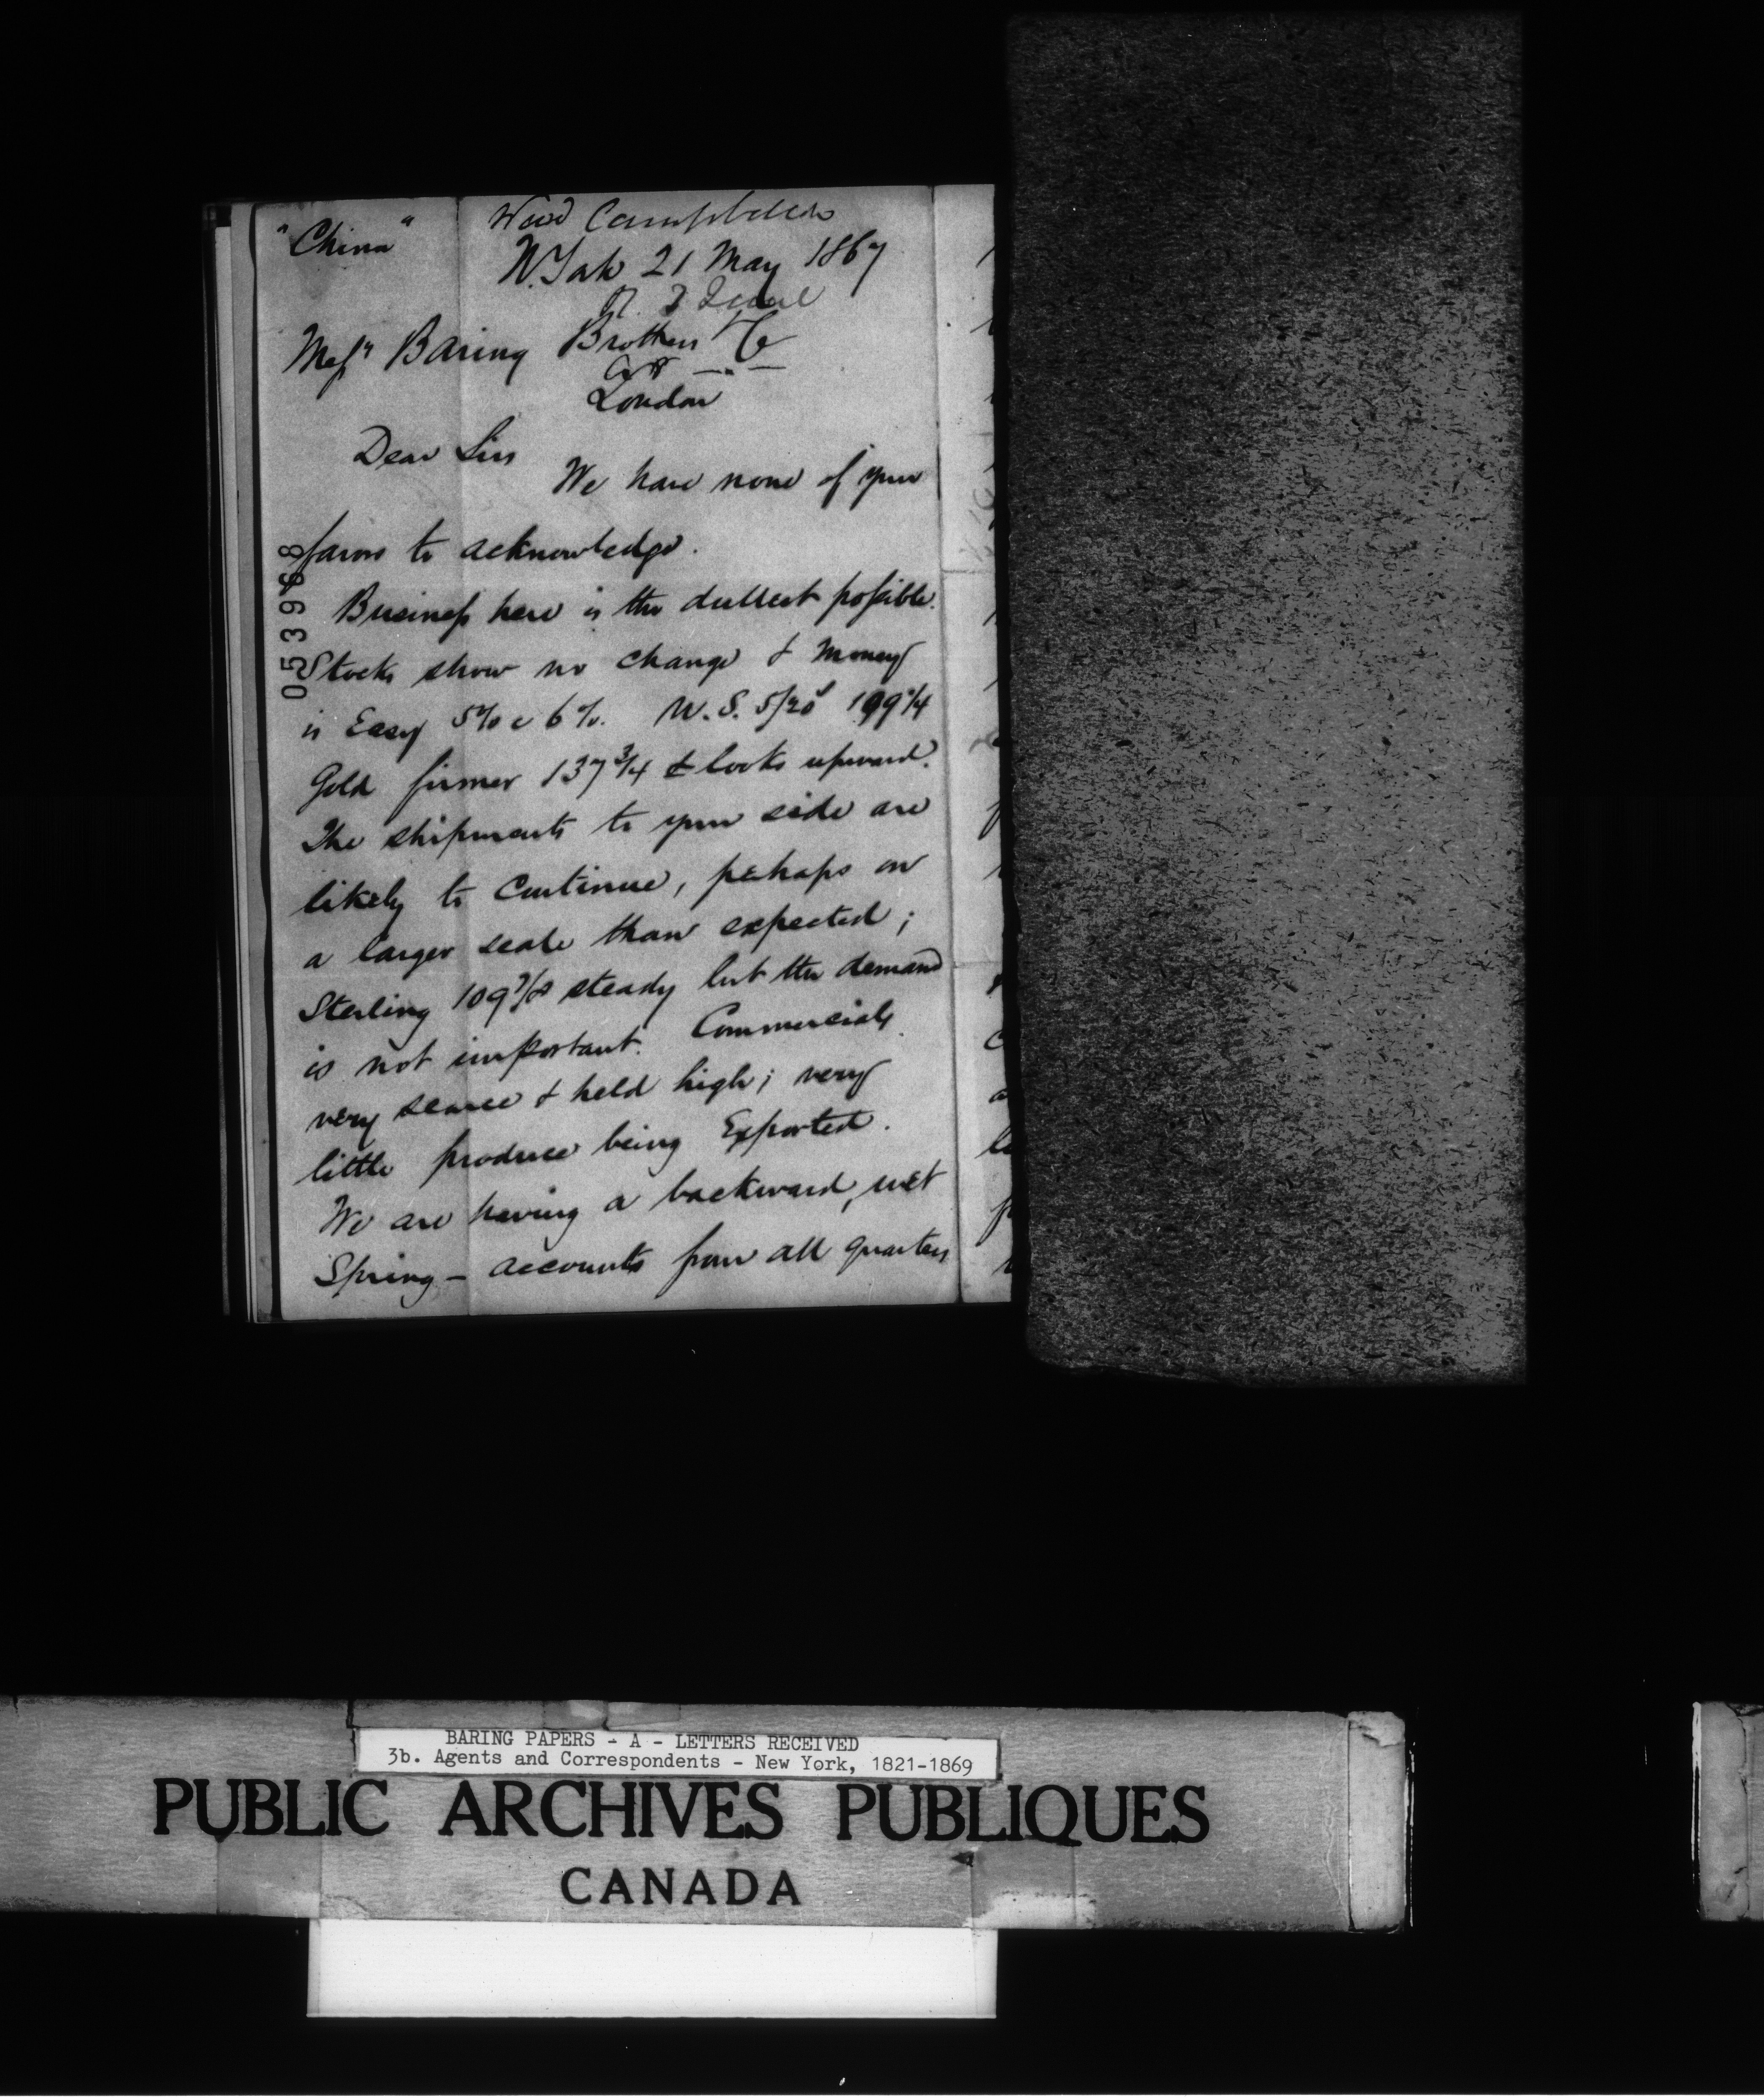 "China"
Ward Campbell &
N. York 21 May 1867
R. 3 June
Mess<sup>rs</sup> Baring Brothers & Co
London
Dear Sirs
We have none of your
favors to acknowledge.
Business here is the dullest possible.
Stocks show no change & Money
is Easy 5% @ 6%. U.S. 5/20<sup>s</sup>
Gold firmer 137 3/4 & looks upward.
The shipments to your side are
likely to continue, perhaps on
a larger scale than expected;
Sterling 109 7/8 steady but the demand
is not important. Commercials
very scarce & held high; very
little produce being Exported.
We are having a backward, wet
Spring – accounts from all quarters
053968
BARING PAPERS - A - LETTERS RECEIVED
3b. Agents and Correspondents - New York, 1821-1869
PUBLIC ARCHIVES PUBLIQUES
CANADA